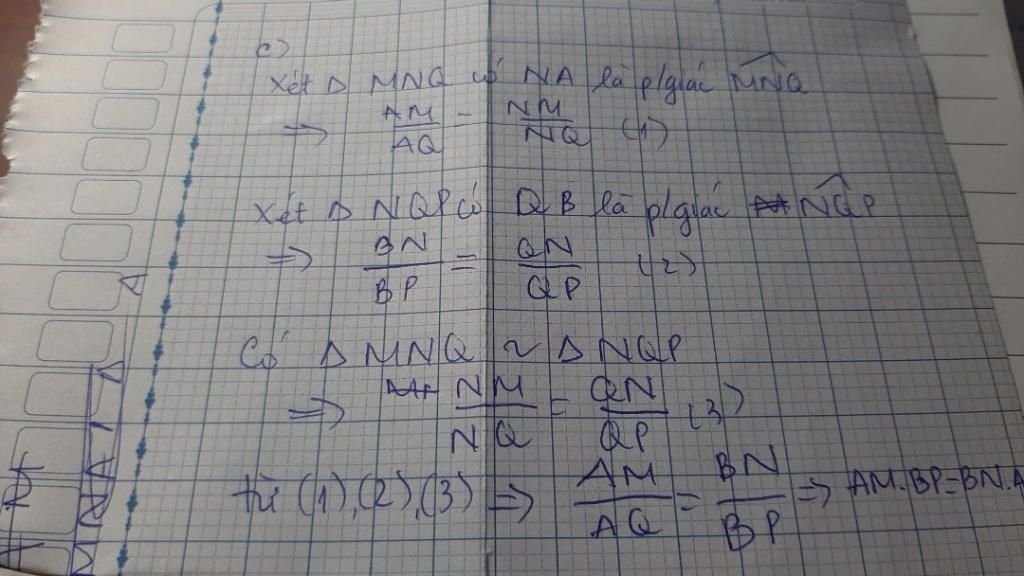 c)
Xét Δ MNQ có NA là p/giác \widehat{MNQ}
⇒ AM/AQ = NM/NQ (1)
Xét Δ NQP có QB là p/giác \widehat{NQP}
⇒ BN/BP = QN/QP (2)
Có Δ MNQ ~ Δ NQP
⇒ NM/NQ = QN/QP (3)
từ (1),(2),(3) ⇒ AM/AQ = BN/BP ⇒ AM.BP=BN.A